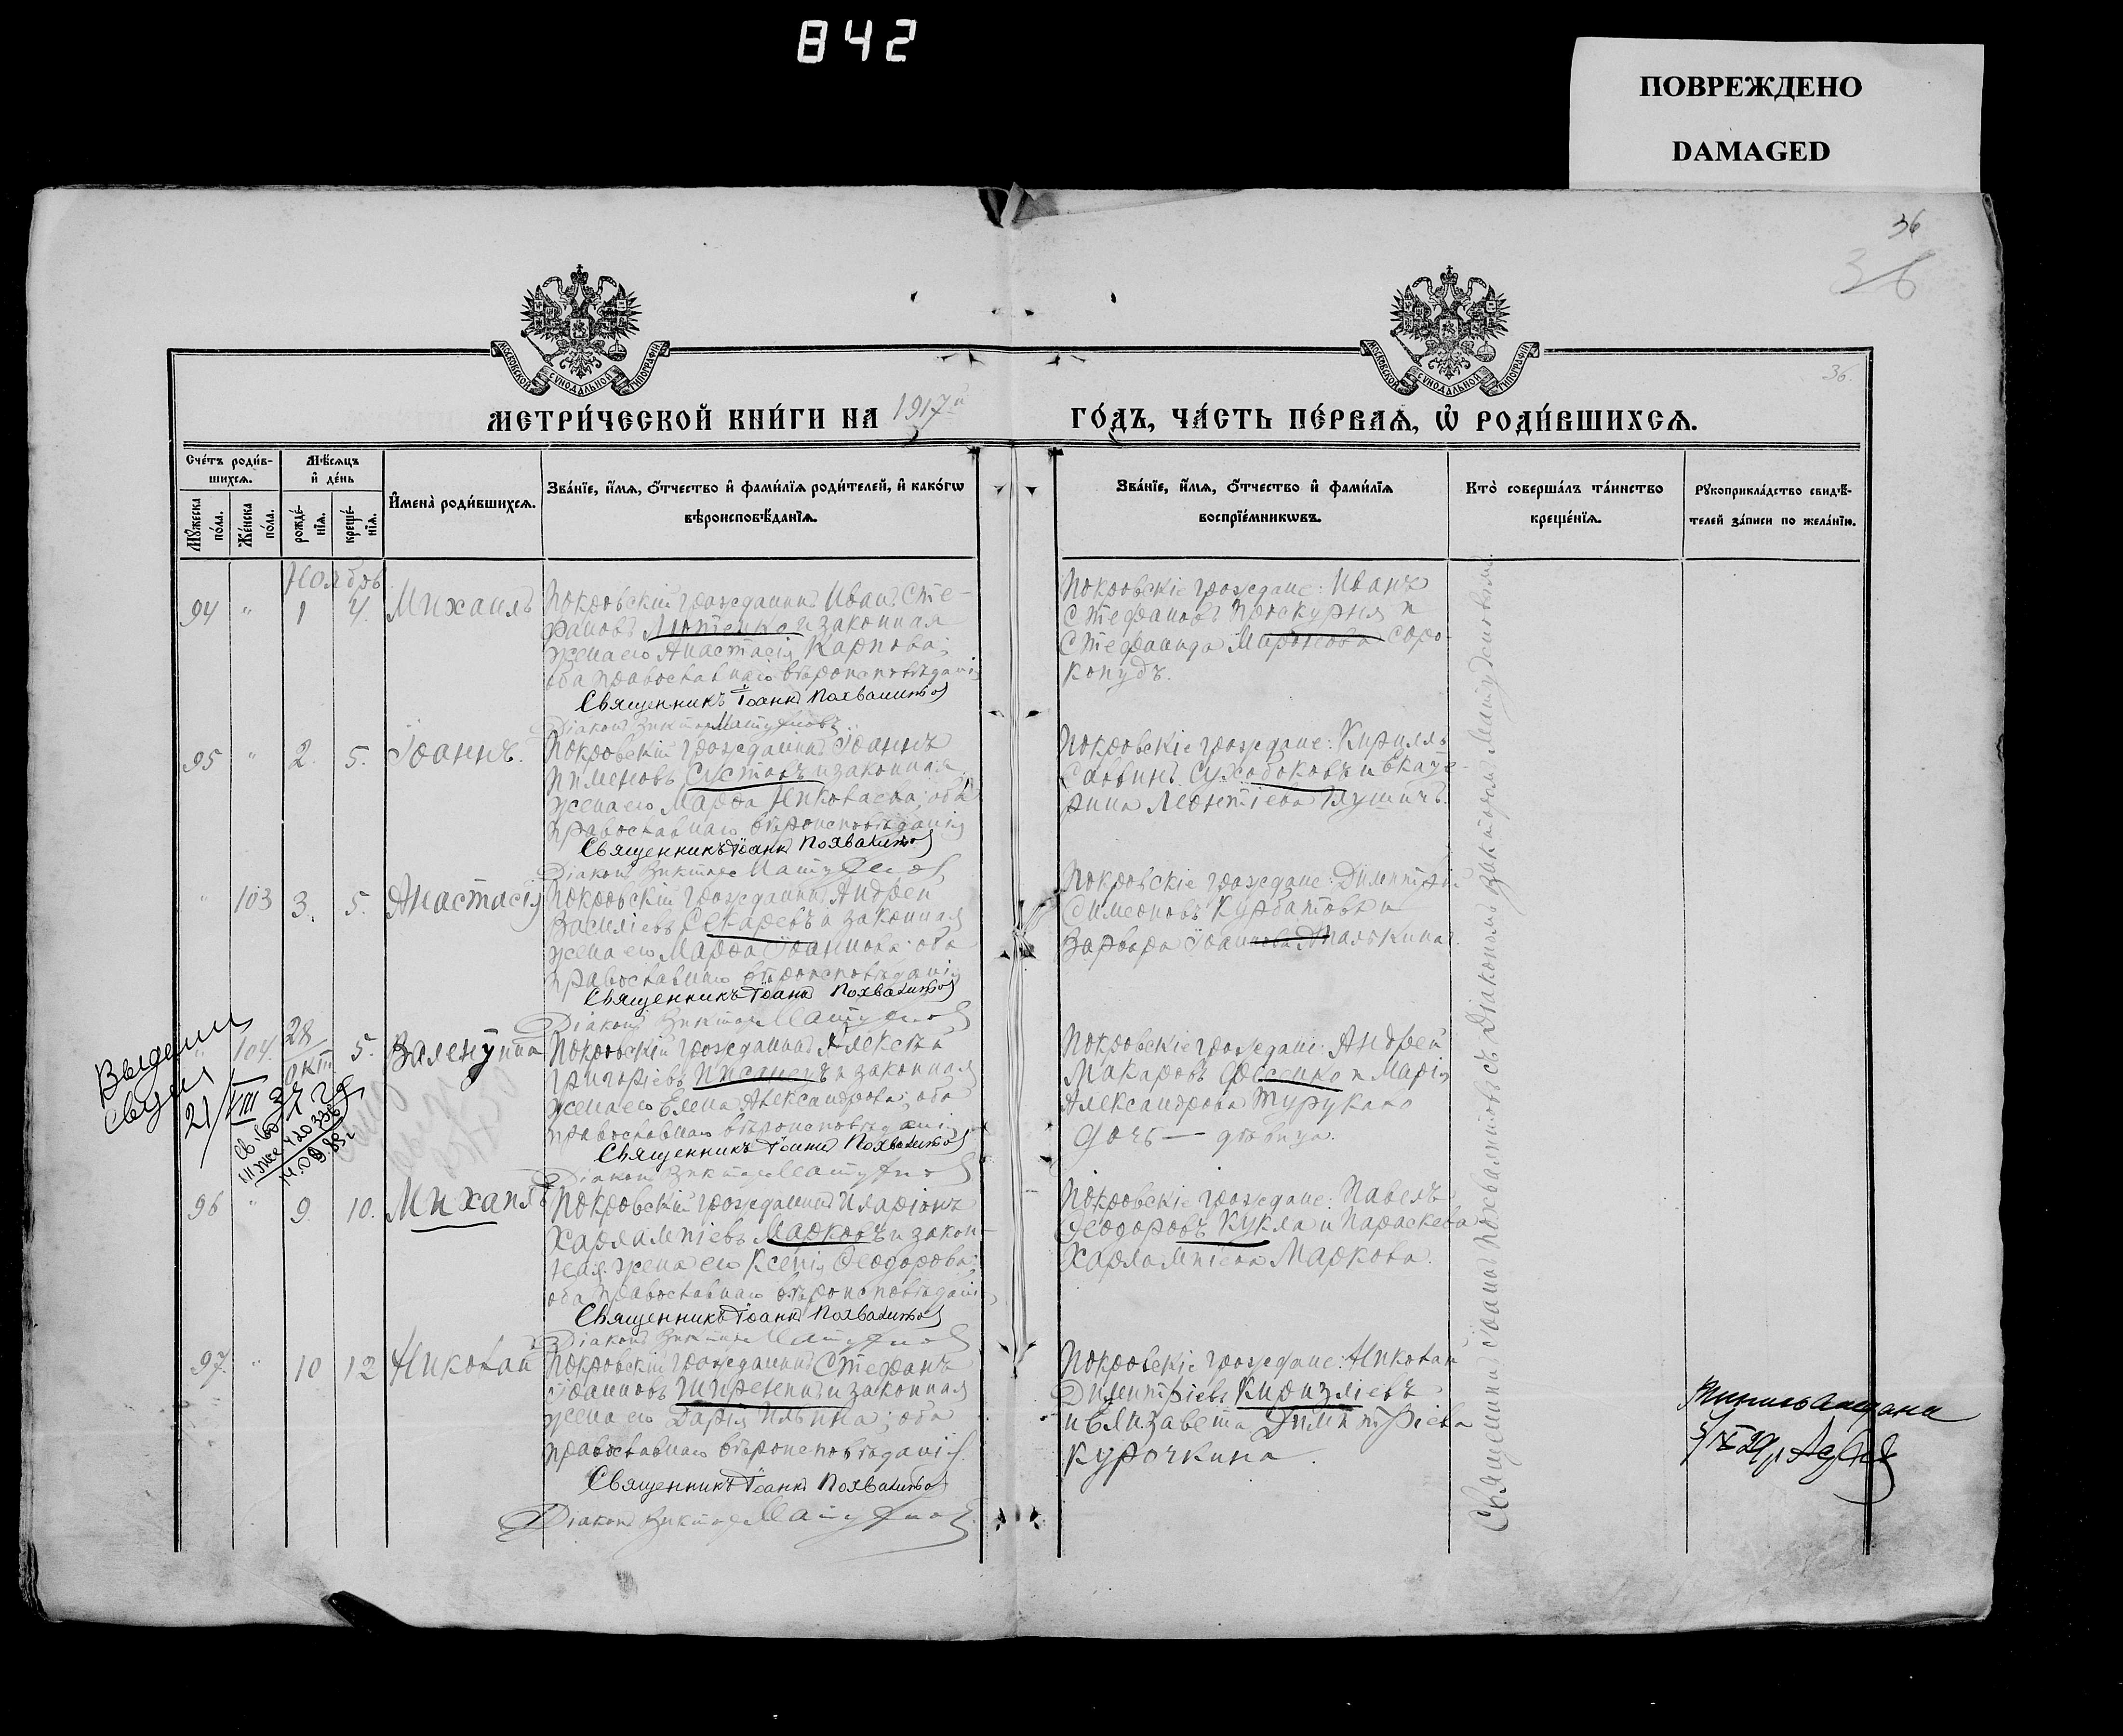 842
ПОВРЕЖДЕНО
DAMAGED
36
36
36.
МОСКОВСКОЙ СѴНОДАЛЬНОЙ ТИПОГРАФІИ
МОСКОВСКОЙ СѴНОДАЛЬНОЙ ТИПОГРАФІИ
МЕТРИ́ЧЕСКОЙ КНИ́ГИ НА 1917й ГО́ДЪ, ЧА́СТЬ ПЕ́РВАѦ, Ѡ҆ РОДИ́ВШИХСѦ.
Сче́тъ роди́в-
шихсѧ.
Мꙋ́жеска по́ла.
Же́нска по́ла.
Мѣ́сѧцъ
и҆ де́нь
рожде́-
нїѧ.
креще́-
нїѧ.
И҆мена̀ роди́вшихсѧ.
Зва́нїе, и҆́мѧ, ѻ҆́тчество и҆ фами́лїѧ роди́телей, и҆ како́гѡ
вѣроисповѣ́данїѧ.
Зва́нїе, и҆́мѧ, ѻ҆́тчество и҆ фами́лїѧ
воспрїе́мникѡвъ.
Кто̀ соверша́лъ та́инство
креще́нїѧ.
Рꙋкоприкла́дство свидѣ́-
телей за́писи по жела́нїю.
Ноябрь
94 " 1 4. Михаилъ
Покровскій гражданинъ Иванъ Сте-
фановъ Лютенко и законная
жена его Анастасія Карпова;
оба православнаго вѣроисповѣданія
Священникъ Іоаннъ Похвалитовъ
Діаконъ Викторъ Матуреновъ
Покровскіе граждане: Иванъ
Стефановъ Проскурня и
Стефанида Миронова Соро-
копудъ.
95 " 2. 5. Іоаннъ.
Покровскій гражданинъ Іоаннъ
Пименовъ Сустовъ и законная
жена его Марфа Николаева; оба
православнаго вѣроисповѣданія
Священникъ Іоаннъ Похвалитовъ
Діаконъ Викторъ
Покровскіе граждане: Кириллъ
Саввинъ Сухобоковъ и Екате-
рина Леонтіева Глушичъ.
" 103 3. 5. Анастасія
Покровскій гражданинъ Андрей
Василіевъ Секаревъ и законная
жена его Марфа Іоаннова; оба
православнаго вѣроисповѣданія
Священникъ Іоаннъ Похвалитовъ
Діаконъ Викторъ
Покровскіе граждане: Димитрій
Симеоновъ Курбатовъ и
Варвара Іоаннова Малькина.
" 104. 28 окт. 5. Валентина
Покровскій гражданинъ Алексѣй
Григоріевъ Писанецъ и законная
жена его Елена Александрова; оба
православнаго вѣроисповѣданія
Священникъ Іоаннъ Похвалитовъ
Діаконъ Викторъ
Покровскіе граждане: Андрей
Макаровъ Фесенко и Марія
Александрова Турукало
дочь — дѣвица.
21/VIII 37 г
14.09.83г
96 " 9. 10. Михаилъ
Покровскій гражданинъ Иларіонъ
Харлампіевъ Марковъ и закон-
ная жена его Ксенія Ѳеодорова;
оба православнаго вѣроисповѣданія
Священникъ Іоаннъ Похвалитовъ
Діаконъ Викторъ
Покровскіе граждане: Павелъ
Ѳеодоровъ Кукла и Параскева
Харлампіева Маркова.
97. " 10 12 Николай
Покровскій гражданинъ Стефанъ
Іоанновъ Ширенинъ и законная
жена его Дарія Ильина; оба
православнаго вѣроисповѣданія.
Священникъ Іоаннъ Похвалитовъ
Діаконъ Викторъ
Покровскіе граждане: Николай
Димитріевъ Киризліевъ
и Елизавета Димитріева
Курочкина.
Священникъ Іоаннъ Похвалитовъ съ Діакономъ